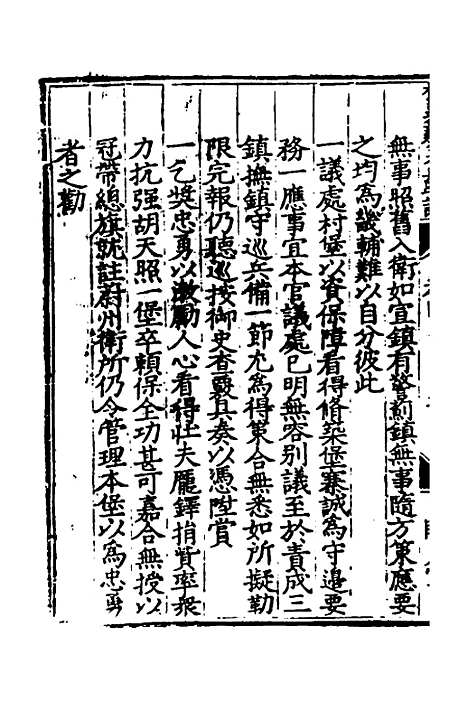 無事照舊入衛如宣鎮有警薊鎮無事隨方策應要
之均為畿輔難以自分彼此
一議處村堡以資保障看得脩築堡寨誠為守邊要
務一應事宜本官議處已明無容别議至於責成三
鎮撫鎮守巡兵備一節尤為得策合無悉如所擬勒
限完報仍聽巡按御史查覈具奏以憑陞賞
一乞奬忠勇以激勵人心看得壯夫龎鐸捐貲率衆
力抗强胡天照一堡卒賴保全功甚可嘉合無授以
冠帶總旗就註蔚州衛所仍令管理本堡以為忠勇
者之勸